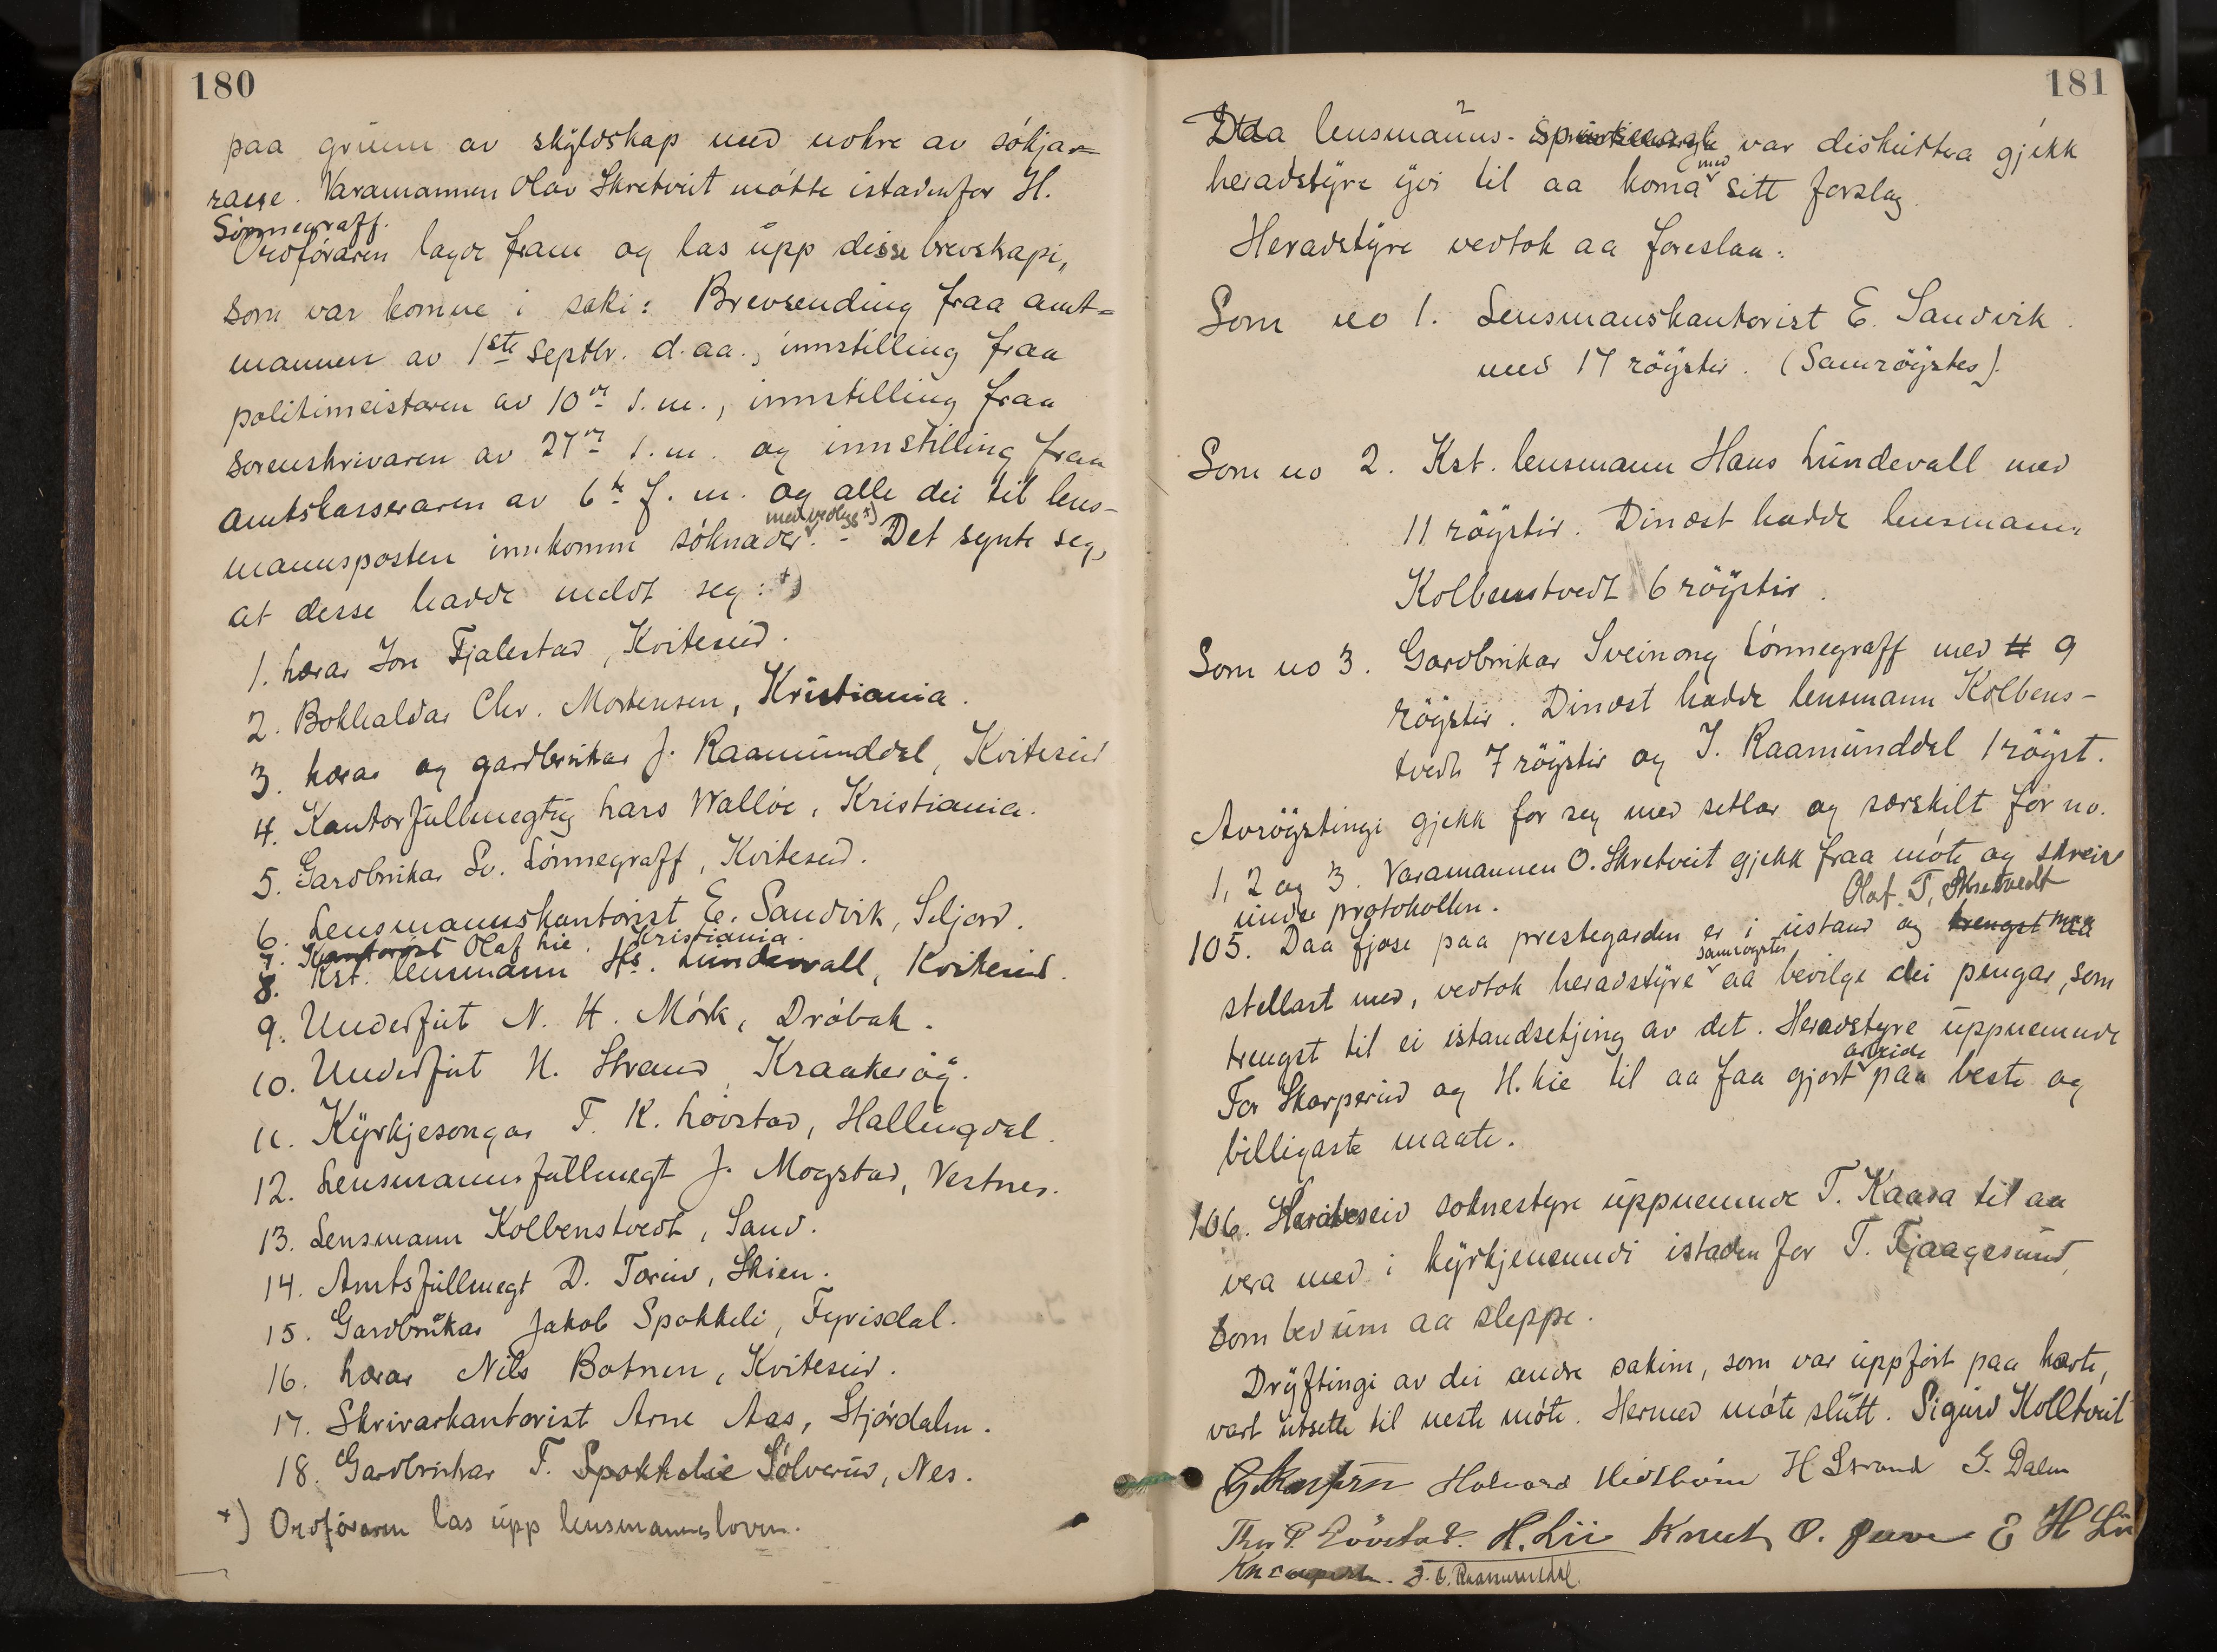 180
paa grunn av skyldskap med nokre av søkjar=
raene. Varamannen Olav Skretveit møtte istadenfor H.
Sønnegraff.
Ordføraren lagde fram og las upp disse brevskapi,
som var komne i saki: Brevsending fraa amt=
mannen av 1ste Septbr. d. aa., innstilling fraa
politimeistaren av 10de s. m., innstilling fraa
sorenskrivaren av 27de s. m. og innstilling fraa
Amtskasseraren av 6te f. m. og alle dei til lens-
mannsposten innkomne søknader med vedlegg +). - Det synte seg,
at desse hadde meldt seg: +)
1. Lærar Jon Fjalestad, Kviteseid.
2. Bokhaldar Chr. Mortensen, Kristiania.
3. Lærar og gardbrukar J. Raamunddal, Kviteseid
4. Kontorfullmegtig Lars Walløe, Kristiania.
5. Gardbrukar Sv. Lønnegraff, Kviteseid.
6. Lensmannskontorist E. Sandvik, Seljord.
7. Kontorist Olaf Lie, Kristiania.
8. Kst. lensmann Hs. Lundevall, Kviteseid.
9. Underfut N. H. Mørk, Drøbak.
10. Underfut N. Strand, Kraakerøy.
11. Kyrkjesongar T. K. Løvstad, Hallingdal.
12. Lensmannsfullmegt J. Mogstad, Vestnes.
13. Lensmann Kolbenstvedt, Sand.
14. Amtsfullmegt D. Torud, Skien.
15. Gardbrukar Jakob Spokkeli, Fyrisdal.
16. Lærar Nils Botnen, Kviteseid.
17. Skrivarkontorist Arne Aas, Stjørdalen.
18. Gardbrukar T. Sølverud, Nes.
+) Ordføraren las upp lensmannsloven.
181
Daa lensmanns- var diskuttera gjekk
heradstyre yvi til aa koma med sitt forslag
Heradstyre vedtok aa foreslaa:
Som no 1. Lensmanskontorist E. Sandvik.
med 17 røyster. (Samrøystes).
Som no 2. Kst. lensmann Hans Lundevall med
11 røyster. Dinæst hadde lensmann
Kolbenstvedt 6 røyster.
Som no 3. Gardbrukar Sveinong Lønnegraff med 9
røyster. Dinæst hadde lensmann Kolbens-
tvedt 7 røyster og J. Raamunddal 1 røyst.
Avrøystingi gjekk for seg med setlar og særskilt for no.
1, 2 og 3. Varamannen O. Skretveit gjekk fraa møte og skreiv
unde protokollen. Olaf. T. Skretvedt
105. Daa fjøse paa prestegarden er i ustand og trengst maa
stellast med, vedtok heradstyre samrøystes aa bevilge dei pengar, som
trengst til ei istandsetjing av det. Heradstyre uppnemnde
Tor Skarperud og H. Lie til aa faa gjort arbeide paa beste og
billigaste maate.
106. soknestyre uppnemnde T. Kaasa til aa
vera med i kyrkjenemndi istaden for T. Fjaagesund,
som bed um aa sleppe.
Drøftingi av dei andre sakinn, som var uppført paa karte,
vart utsette til neste møte. Hermed møte slutt. Sigurd Kolltveit
Halvord Midtbøen H Strand G. Dalen
Tov P. Løvstad. H. Lii Knut O. Juve E H Lii
J. O. Raamunddal.